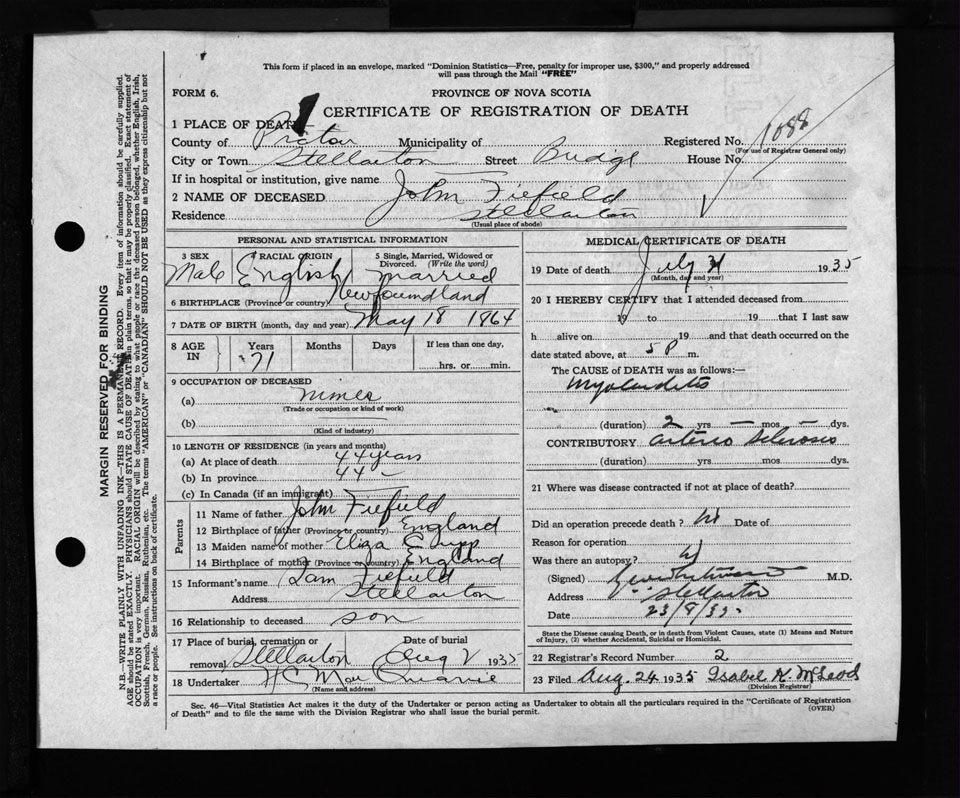 This form if placed in an envelope, marked "Dominion Statistics—Free, penalty for improper use, $300," and properly addressed
will pass through the Mail "FREE"
FORM 6. PROVINCE OF NOVA SCOTIA
CERTIFICATE OF REGISTRATION OF DEATH
1 PLACE OF DEATH
County of Pictou Municipality of Registered No. 1088
(For use of Registrar General only)
City or Town Stellarton Street Bridge House No.
If in hospital or institution, give name
2 NAME OF DECEASED John Fiefield
Residence Stellarton
(Usual place of abode)
PERSONAL AND STATISTICAL INFORMATION
3 SEX Male
RACIAL ORIGIN English
5 Single, Married, Widowed or Divorced. (Write the word) married
6 BIRTHPLACE (Province or country) Newfoundland
7 DATE OF BIRTH (month, day and year) May 18 1864
8 AGE IN Years 71 Months Days If less than one day, hrs. or min.
9 OCCUPATION OF DECEASED
(a) miner
(Trade or occupation or kind of work)
(b)
(Kind of industry)
10 LENGTH OF RESIDENCE (in years and months)
(a) At place of death 44 years
(b) In province 44 –
(c) In Canada (if an immigrant)
Parents
11 Name of father John Fiefield
12 Birthplace of father (Province or country) England
13 Maiden name of mother Eliza
14 Birthplace of mother (Province or country) England
15 Informant's name Sam Fiefield
Address Stellarton
16 Relationship to deceased son
17 Place of burial, cremation or removal Stellarton Date of burial Aug 2 1935
18 Undertaker
(Name and address)
MEDICAL CERTIFICATE OF DEATH
19 Date of death July 31 1935
(Month, day and year)
20 I HEREBY CERTIFY that I attended deceased from
19 to 19 that I last saw
h alive on 19 and that death occurred on the
date stated above, at 5 P m.
The CAUSE of DEATH was as follows:—
Myocarditis
(duration) 2 yrs. mos. dys.
CONTRIBUTORY arterio sclerosis
(duration) yrs. mos. dys.
21 Where was disease contracted if not at place of death?
Did an operation precede death? Date of
Reason for operation
Was there an autopsy?
(Signed) M.D.
Address Stellarton
Date 23/8/35
State the Disease causing Death, or in death from Violent Causes, state (1) Means and Nature
of Injury, (2) whether Accidental, Suicidal or Homicidal.
22 Registrar's Record Number 2
23 Filed Aug. 24 1935 Isabel K. McLeod
(Division Registrar)
Sec. 46—Vital Statistics Act makes it the duty of the Undertaker or person acting as Undertaker to obtain all the particulars required in the "Certificate of Registration
of Death" and to file the same with the Division Registrar who shall issue the burial permit. (OVER)
MARGIN RESERVED FOR BINDING
N.B.—WRITE PLAINLY WITH UNFADING INK—THIS IS A PERMANENT RECORD. Every item of information should be carefully supplied.
AGE should be stated EXACTLY. PHYSICIANS should STATE CAUSE OF DEATH in plain terms, so that it may be properly classified. Exact statement of
OCCUPATION is very important. RACIAL ORIGIN will be described by stating to what people or race the deceased person belonged, whether English, Irish,
Scottish, French, German, Russian, Ruthenian, etc. The terms "AMERICAN" or "CANADIAN" SHOULD NOT BE USED as they express citizenship but not
a race or people. See instructions on back of certificate.